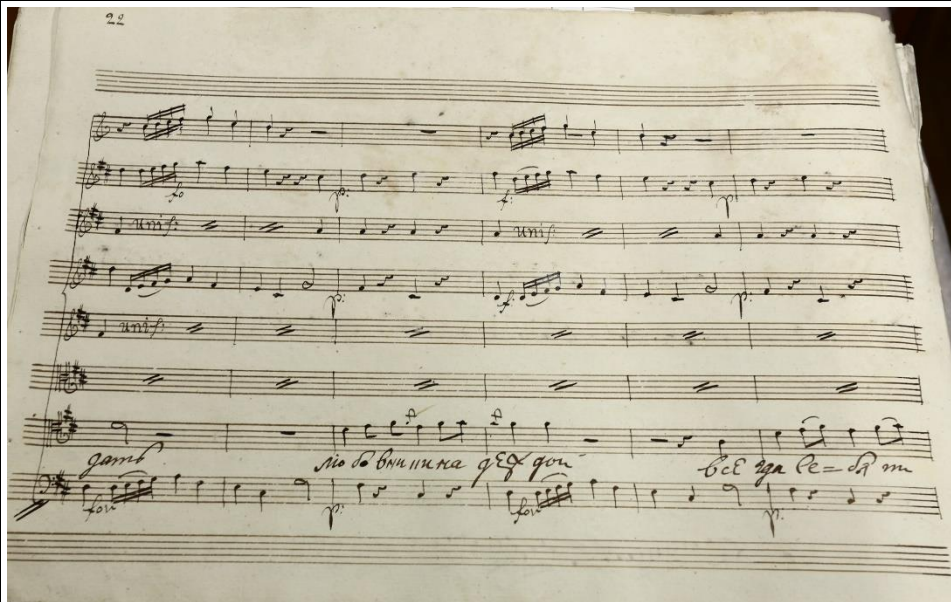 22
fo p: f: p
unis: unis:
p: f: p:
unis:
дать любовничина всегда се=бя
for p: for p: